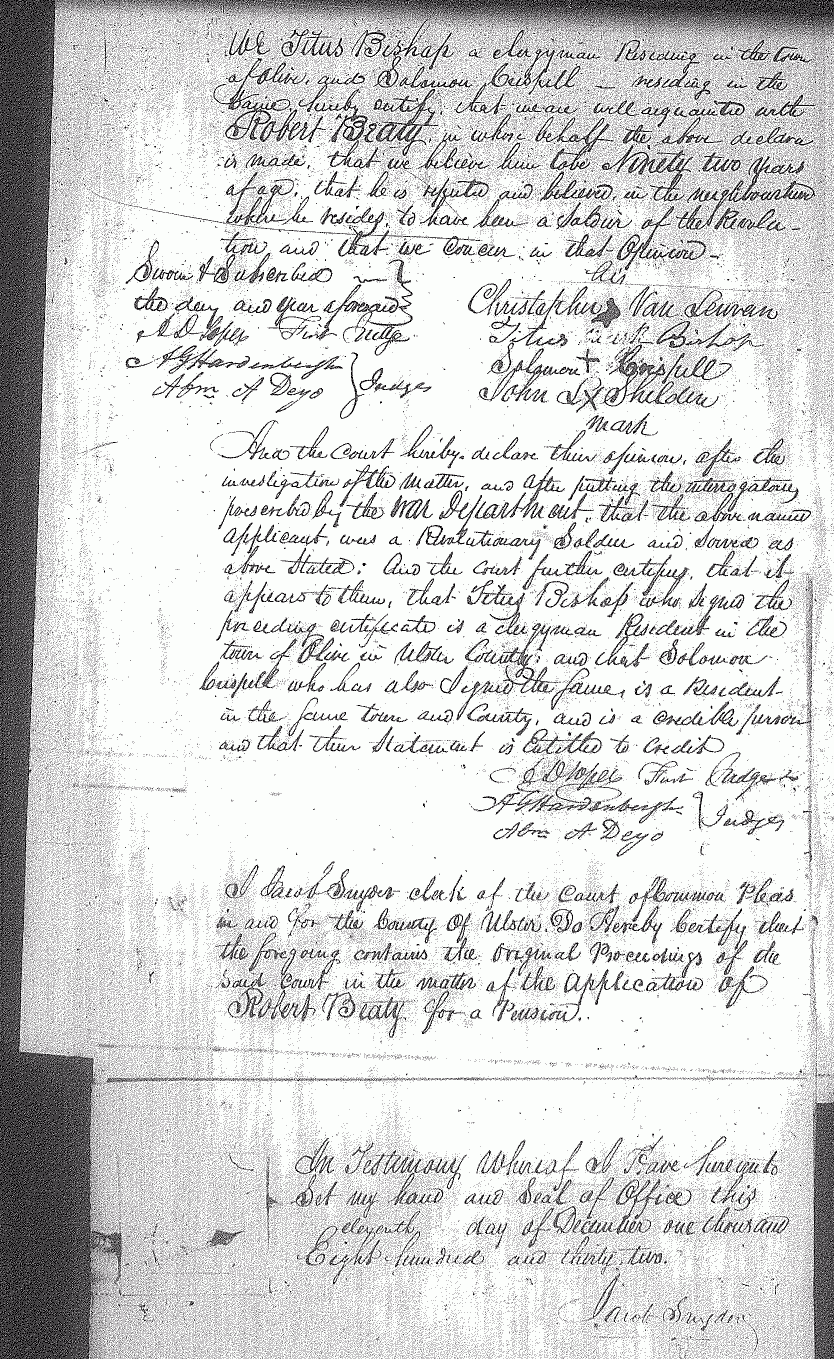 We Titus Bishop a clergyman Residing in the town
of Olive, and Solomon Crispill — residing in the
Same, hereby certify, that we are well acquainted with
Robert Beaty, in whose behalf the above declara
is made, that we believe him to be Ninety two Years
of age, that he is reputed and believed, in the neighbourhood
where he resides, to have been a Soldier of the Revolu -
tion and that we Concur in that Opinion -
Sworn & Subscribed
the day and year aforesaid
A. D. Soper First Judge
A G Hardenbergh
Abm A Deyo } Judges
his
Christopher Van Leuvan
Titus Bishop
Solomon + Crispill
John S X Shelden
mark
And the Court hereby declare their opinion, after the
investigation of the matter, and after putting the interrogatories
prescribed by the War Department, that the above named
applicant, was a Revolutionary Soldier and Served as
above Stated: And the Court further certifies, that it
appears to them, that Titus Bishop who signed the
preceding certificate is a clergyman Resident in the
town of Olive in Ulster County; and that Solomon
Crispell who has also Signed the Same, is a Resident
in the Same town and County, and is a credible person
and that their Statement is Entitled to Credit
D Soper First Judge
A G Hardenbergh
Abm A Deyo } Judges
I Jacob Snyder clerk of the Court of Common Pleas
in and for the County Of Ulster. Do Hereby Certify that
the foregoing contains the Original Proceedings of the
said Court in the matter of the Application of
Robert Beaty for a Pension.
In Testimony Whereof I Have hereunto
Set my hand and Seal of Office this
eleventh day of December one thousand
Eight hundred and thirty two.
Jacob Snyder